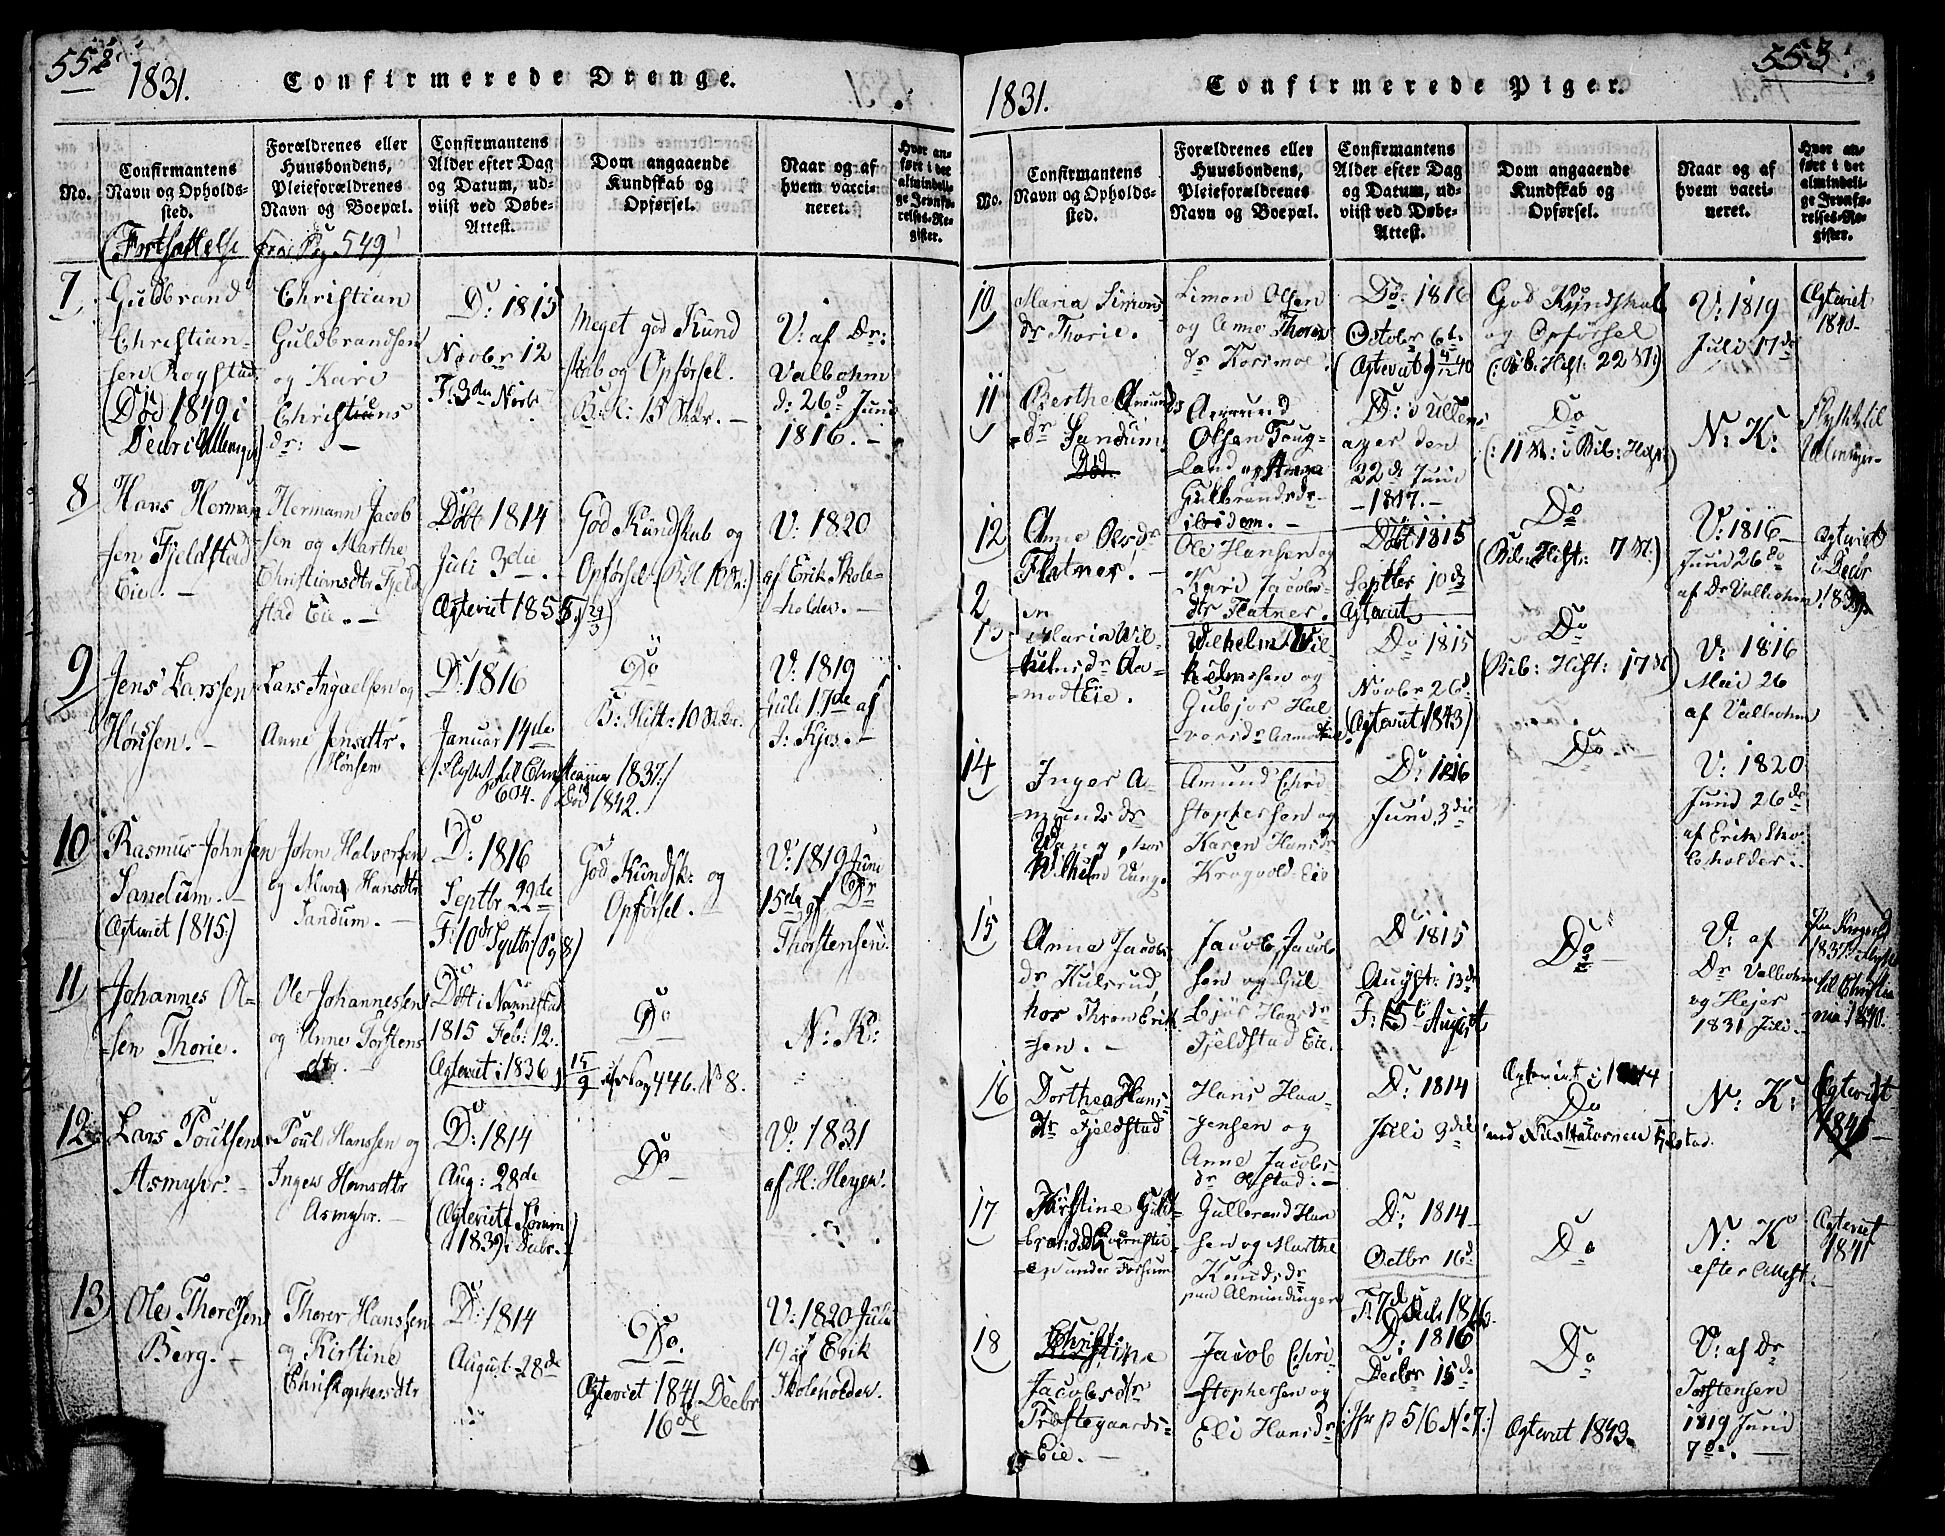 552
1831.
Confirmerede Drenge.
No.
Confirmantens
Navn og Opholds-
sted.
Forældrenes eller
Huusbondens,
Pleieforældrenes
Navn og Boepæl.
Confirmantens
Alder efter Dag
og Datum, ud-
viist ved Døbe-
Attest.
Dom angaaende
Kundskab og
Opførsel.
Naar og af
hvem vacci-
neret.
Hvor an-
ført i det
almindeli-
ge Jevnfø-
relses-Re-
gister.
(Fortsættelse fra Pag. 549)
7
Guldbrand
Christian-
sen Rogstad
(Død 1849 i
Decbr i Ullensager)
Christian
Guldbrandsen
og Kari
Christians
dr: -
D: 1815
Novbr 12
F. 3de Novbr
Meget god Kund
skab og Opførsel.
B: H: 15 Skr. -
V: af Dr:
Valbohm
d: 26d Juni
1816. -
8
Hans Herman
sen Fjeldstad
Eie. -
Hermann Jacob
sen og Marthe
Christiansdtr Fjeld
stad Eie. -
Døbt 1814
Juli 3die -
Ægteviet 1855
God Kundskab og
Opførsel. (Bibl 10 Skr:)
V: 1820
af Erik Skole-
holder. -
9
Jens Larssen
Hønsen. -
Lars Ingaelsen og
Anne Jensdtr.
Hønsen
D: 1816
Januar 14de
(Flyttet til Christiania 1837:)
p 604. Død 1842.
Do
B: Hist: 10 Skr:
V: 1819
Juli 17de af
J: Kjos. -
10
Rasmus Johnsen
Sandum. -
(Ægteviet 1845:)
John Halvorsen
og Mari Hansdtr
Sandum. -
D: 1816
Septbr 22de
F: 10de Septbr (Pg 8)
God Kundsk: og
Opførsel. -
V: 1819 Juni
15de af Dr
Thorstensen
11
Johannes Ol-
sen Thorie.
Ole Johannessen
og Anne Torstens
dtr.
Døbt i Nannestad
1815 Feb: 12.
Ægteviet 1836 15/9 cfr Pag 446. No 8.
Do
N: K:
12
Lars Poulsen
Asmyhr. -
Poul Hanssen og
Inger Hansdtr
Asmyhr. -
D: 1814
Aug: 28de
(Ægteviet
1839 i Febr.)
Do
V: 1831
af H: Heyer.
13
Ole Thoresen
Berg. -
Thorer Hanssen
og Kirstine
Christophersdtr
D: 1814
August 28de
Do.
Ægteviet 1841 Decbr
16de
V: 1820 Juli
19 af Erik
Skoleholder.
553
1831.
Confirmerede Piger.
No.
Confirmantens
Navn og Opholds-
sted.
Forældrenes eller
Huusbondens,
Pleieforældrenes
Navn og Boepæl.
Confirmantens
Alder efter Dag
og Datum, ud-
viist ved Døbe-
Attest.
Dom angaaende
Kundskab og
Opførsel.
Naar og af
hvem vacci-
neret.
Hvor an-
ført i det
almindeli-
ge Jevnfø-
relses-Re-
gister.
10
Maria Simons
dr Thorie.
Simon Olsen
og Anne Thores
dr Korsmoe
Do: 1816
October 6te
(Ægteviet 40
God Kundskab
og Opførsel
(:Bib: Hist: 22 St:)
V: 1819
Juli 17de
Ægteviet
1840
11
Berthe Amunds
dr Sandum
Amund
Olsen Toug-
land og Anna
Gulbrandsdr
ibidem. -
D: i Ullens-
ager den
22de Juni
- 1817. -
Do
(:11 St: i Bib: Hist:)
N: K:
Flyttet til
Ullensager
12
Anne Olesdr
Flatner. -
Ole Hansen og
Kari Jacobs-
dtr Flatner.
Døbt 1815
Septber 10de
Ægteviet
Do
(Bib: Hist: 7 St:)
V: 1816
Juni 26de
af Dr Vallebohm
Ægteviet
i Decbr
1839.
13
Marin Wil-
helmsdr Aa-
modt Eie.
Wilhelm Wil-
helmssen og
Gubjør Hal
vorsdr Aamodt Eie.
Do 1815
Novbr 26d
(Ægteviet 1843)
Do
(Bib: Hist: 17 St)
V: 1816
Mai 26
af Vallebohm
14
Inger A-
munds dr
Vang, hos
Wilhelm Vang.
Amund Chri
stophersen og
Karen Hansdr
Krogvold Eie
D: 1816
Juni 3die
Do -
V: 1820
Juni 26de
af Erik Sko-
leholder. -
15
Anne Jacobs-
dr Hulsrud,
hos Thron Erik-
sen. -
Jacob Jacob
sen og Gul
bjør Hansdr
Fjeldstad Eie.
D 1815
August: 13de
F: 5te August
Do
V: af
Dr Vallebohm
og Hejer
1831 Juli -
1837 Flyttet
til Christia
nia 1840.
16
Dorthea Hans-
dr Fjeldstad
Hans Haa-
gensen og
Anne Jacobs-
dr Opstad. -
D: 1814
Juli 3die
Ægteviet i 1844
Do
N: K:
Ægteviet
1845
17
Kirstine Guld-
brandsdr
under Forhum
Gulbrand Han
sen og Marthe
Knudsdr
paa Almindingen
D: 1814
Octbr 16d
F: 7de Octbr 1816
Do
N: K
efter Attest. -
Ægteviet
1841
18
Christine
Jacobsdtr
Præstegaards-
Eie. -
Jacob Chri
stophersen og
Eli Hansdr
D: 1816
Decbr 15de
(Jfr p 516 No 7:)
Do
Ægteviet 1843.
V: af Dr
Torstensen
1819 Juni
7de. -